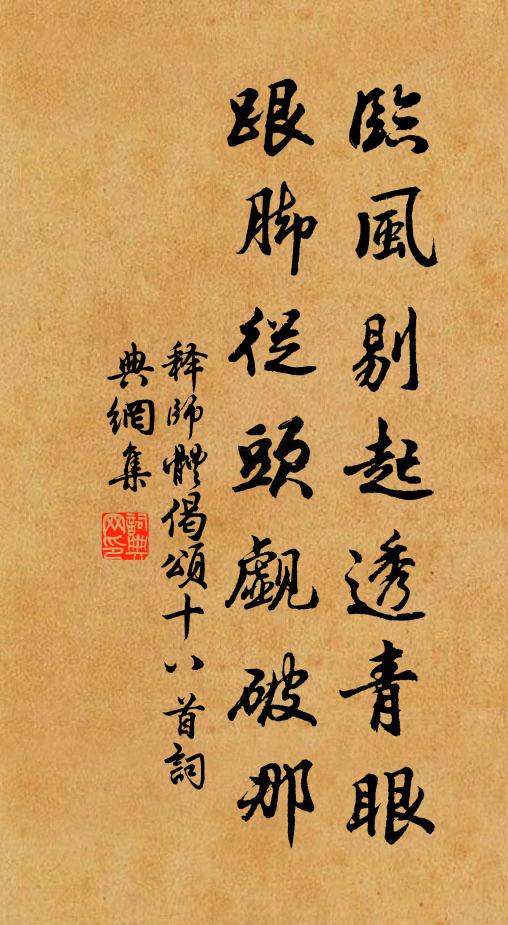 臨風剔起透青眼
跟脚從頭覷破那
释師體偈頌十八首詞
典網集
詞典
网印